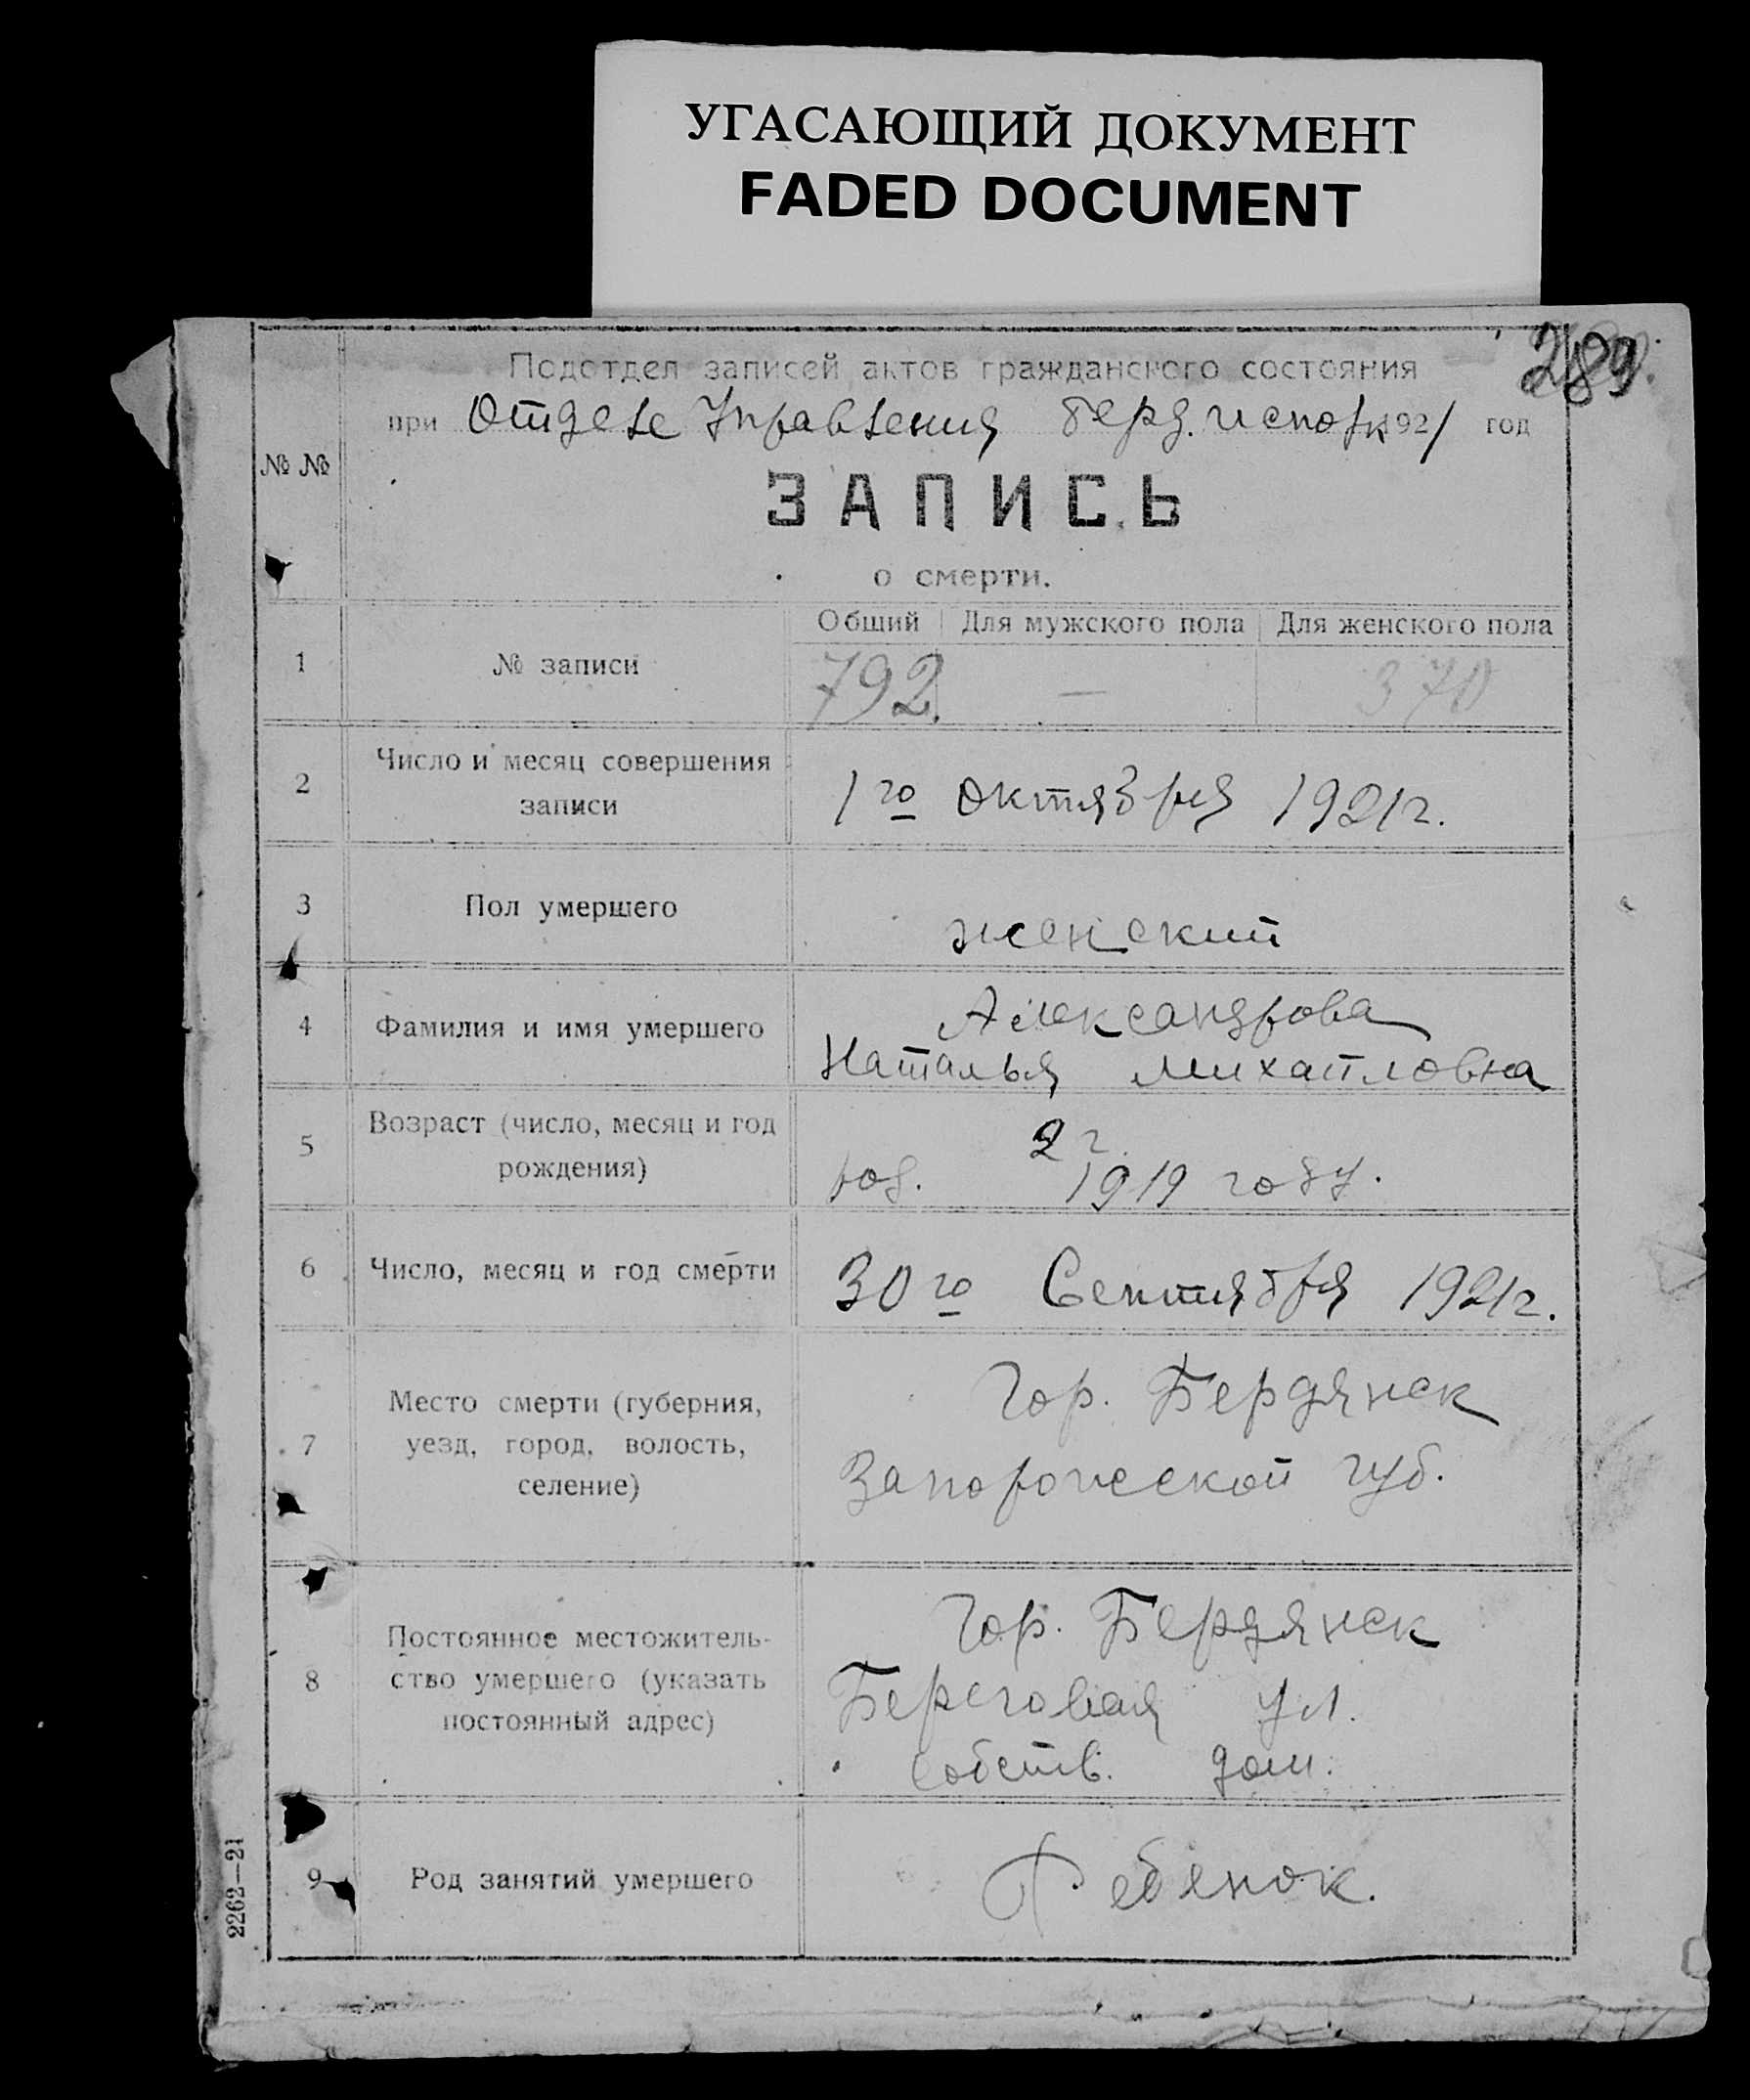 УГАСАЮЩИЙ ДОКУМЕНТ
FADED DOCUMENT
289
Подотдел записей актов гражданского состояния
при Отделе Управления Берд. исполк 1921 год
№ №
ЗАПИСЬ
о смерти.
Общий Для мужского пола Для женского пола
1 № записи 792. — 370
2 Число и месяц совершения
записи
1го Октября 1921г.
3 Пол умершего женский
4 Фамилия и имя умершего
Александрова
Наталья Михайловна
5 Возраст (число, месяц и год
рождения)
2 г.
род. 1919 году.
6 Число, месяц и год смерти 30го Сентября 1921г.
7 Место смерти (губерния,
уезд, город, волость,
селение)
Гор. Бердянск
Запорожской губ.
8 Постоянное местожитель-
ство умершего (указать
постоянный адрес)
Гор. Бердянск
Береговая ул.
собств. дом.
9 Род занятий умершего Ребенок.
2262—21